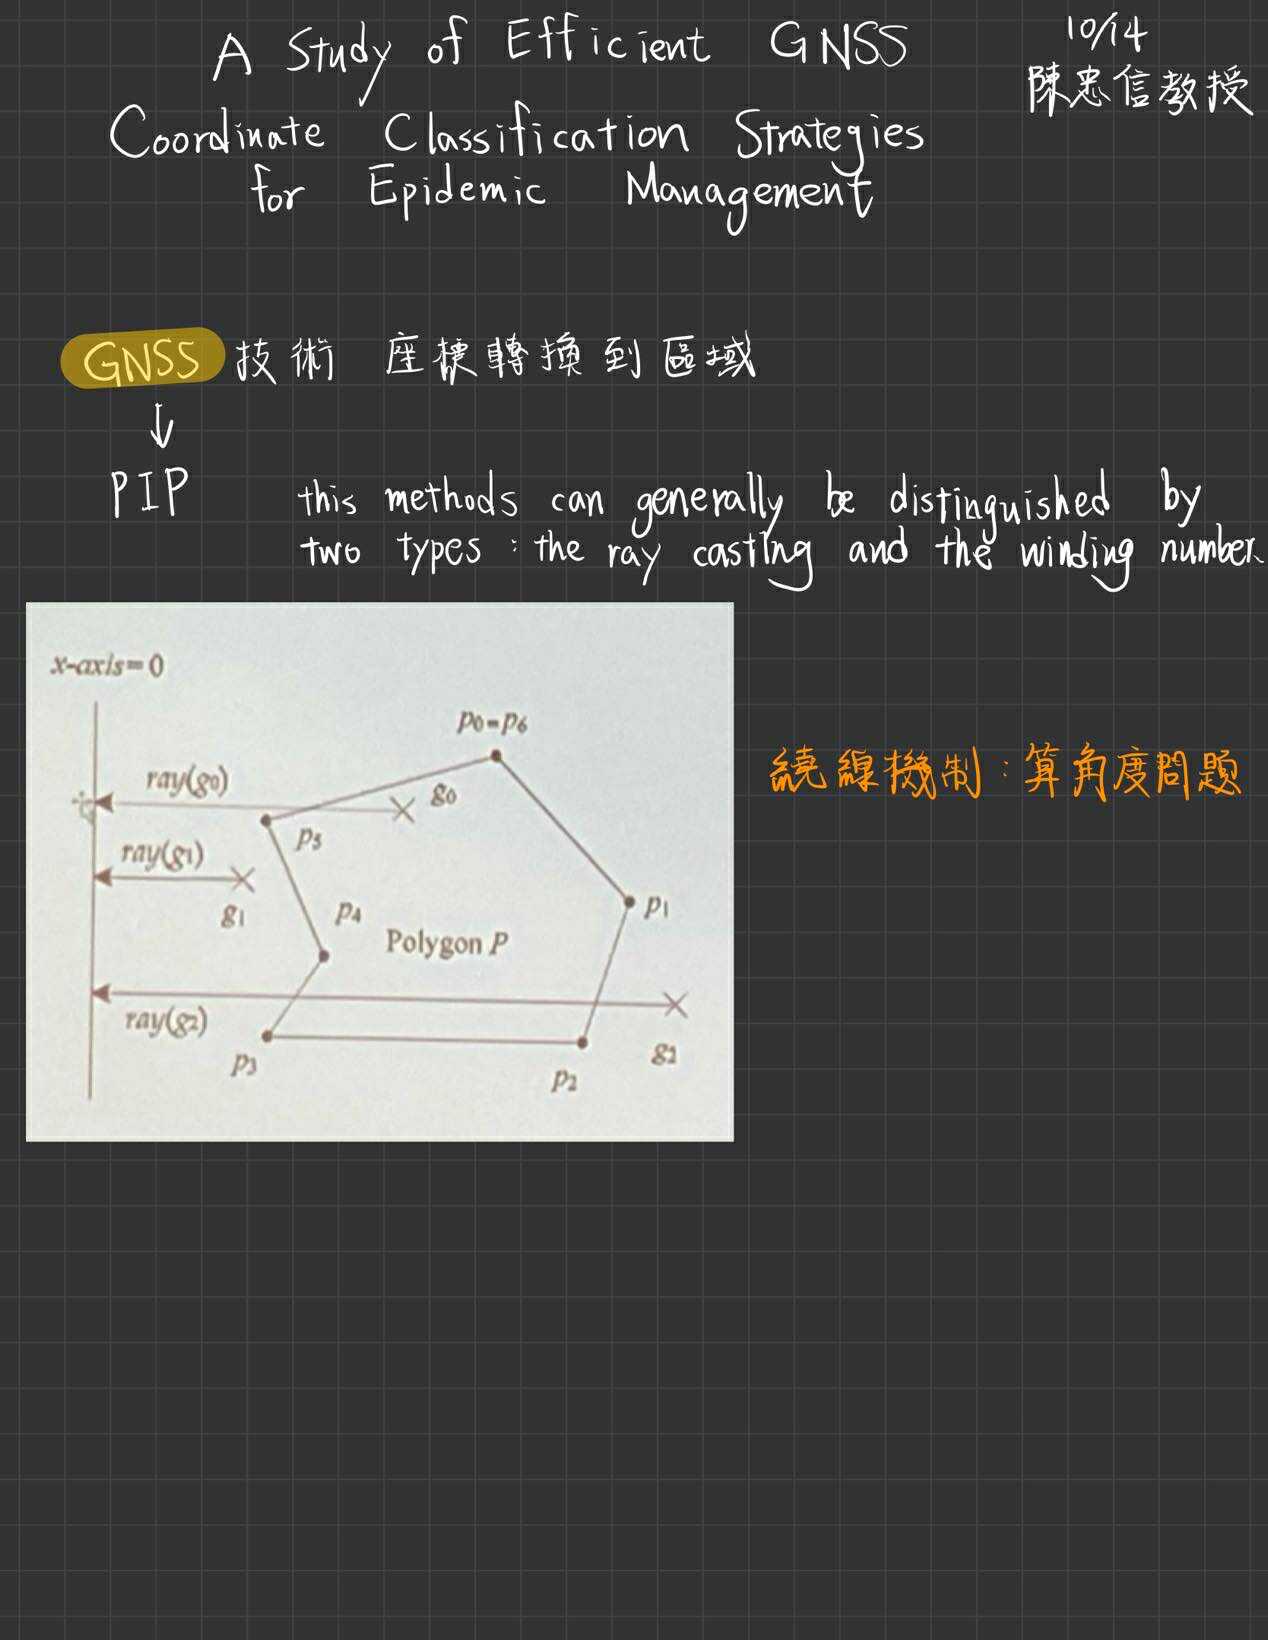 A Study of Efficient GNSS
Coordinate Classification Strategies
for Epidemic Management
10/14
陳忠信教授
GNSS 技術 座標轉換到區域
↓
PIP
this methods can generally be distinguished by
two types : the ray casting and the winding number.
x-axis=0
p0=p6
ray(g0)
g0
p5
ray(g1)
g1
p4
p1
Polygon P
ray(g2)
g2
p3
p2
繞線機制:算角度問題